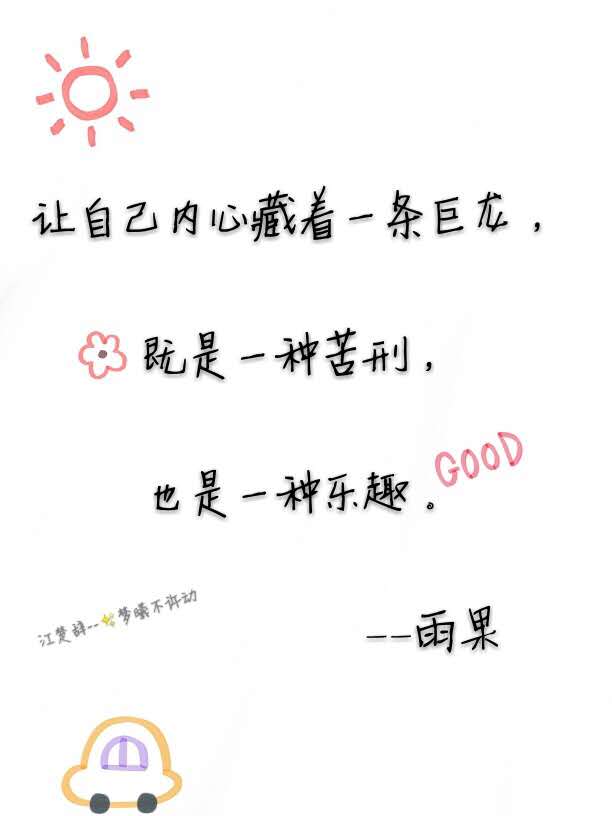 让自己内心藏着一条巨龙，
既是一种苦刑，
也是一种乐趣。
GOOD
江楚辞--✨梦曦不许动
--雨果